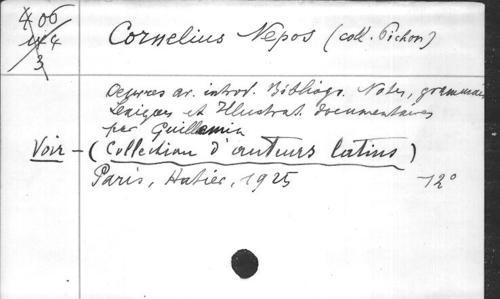 406
3
Cornelius Nepos (coll. Pichon)
Oeuvres av. introd. Bibliogr. Notes, grammaire
Lexiques et Illustrat. documentaires
par Guillemin
Voir - (Collection d'auteurs latins)
Paris, Hatier, 1925 12°